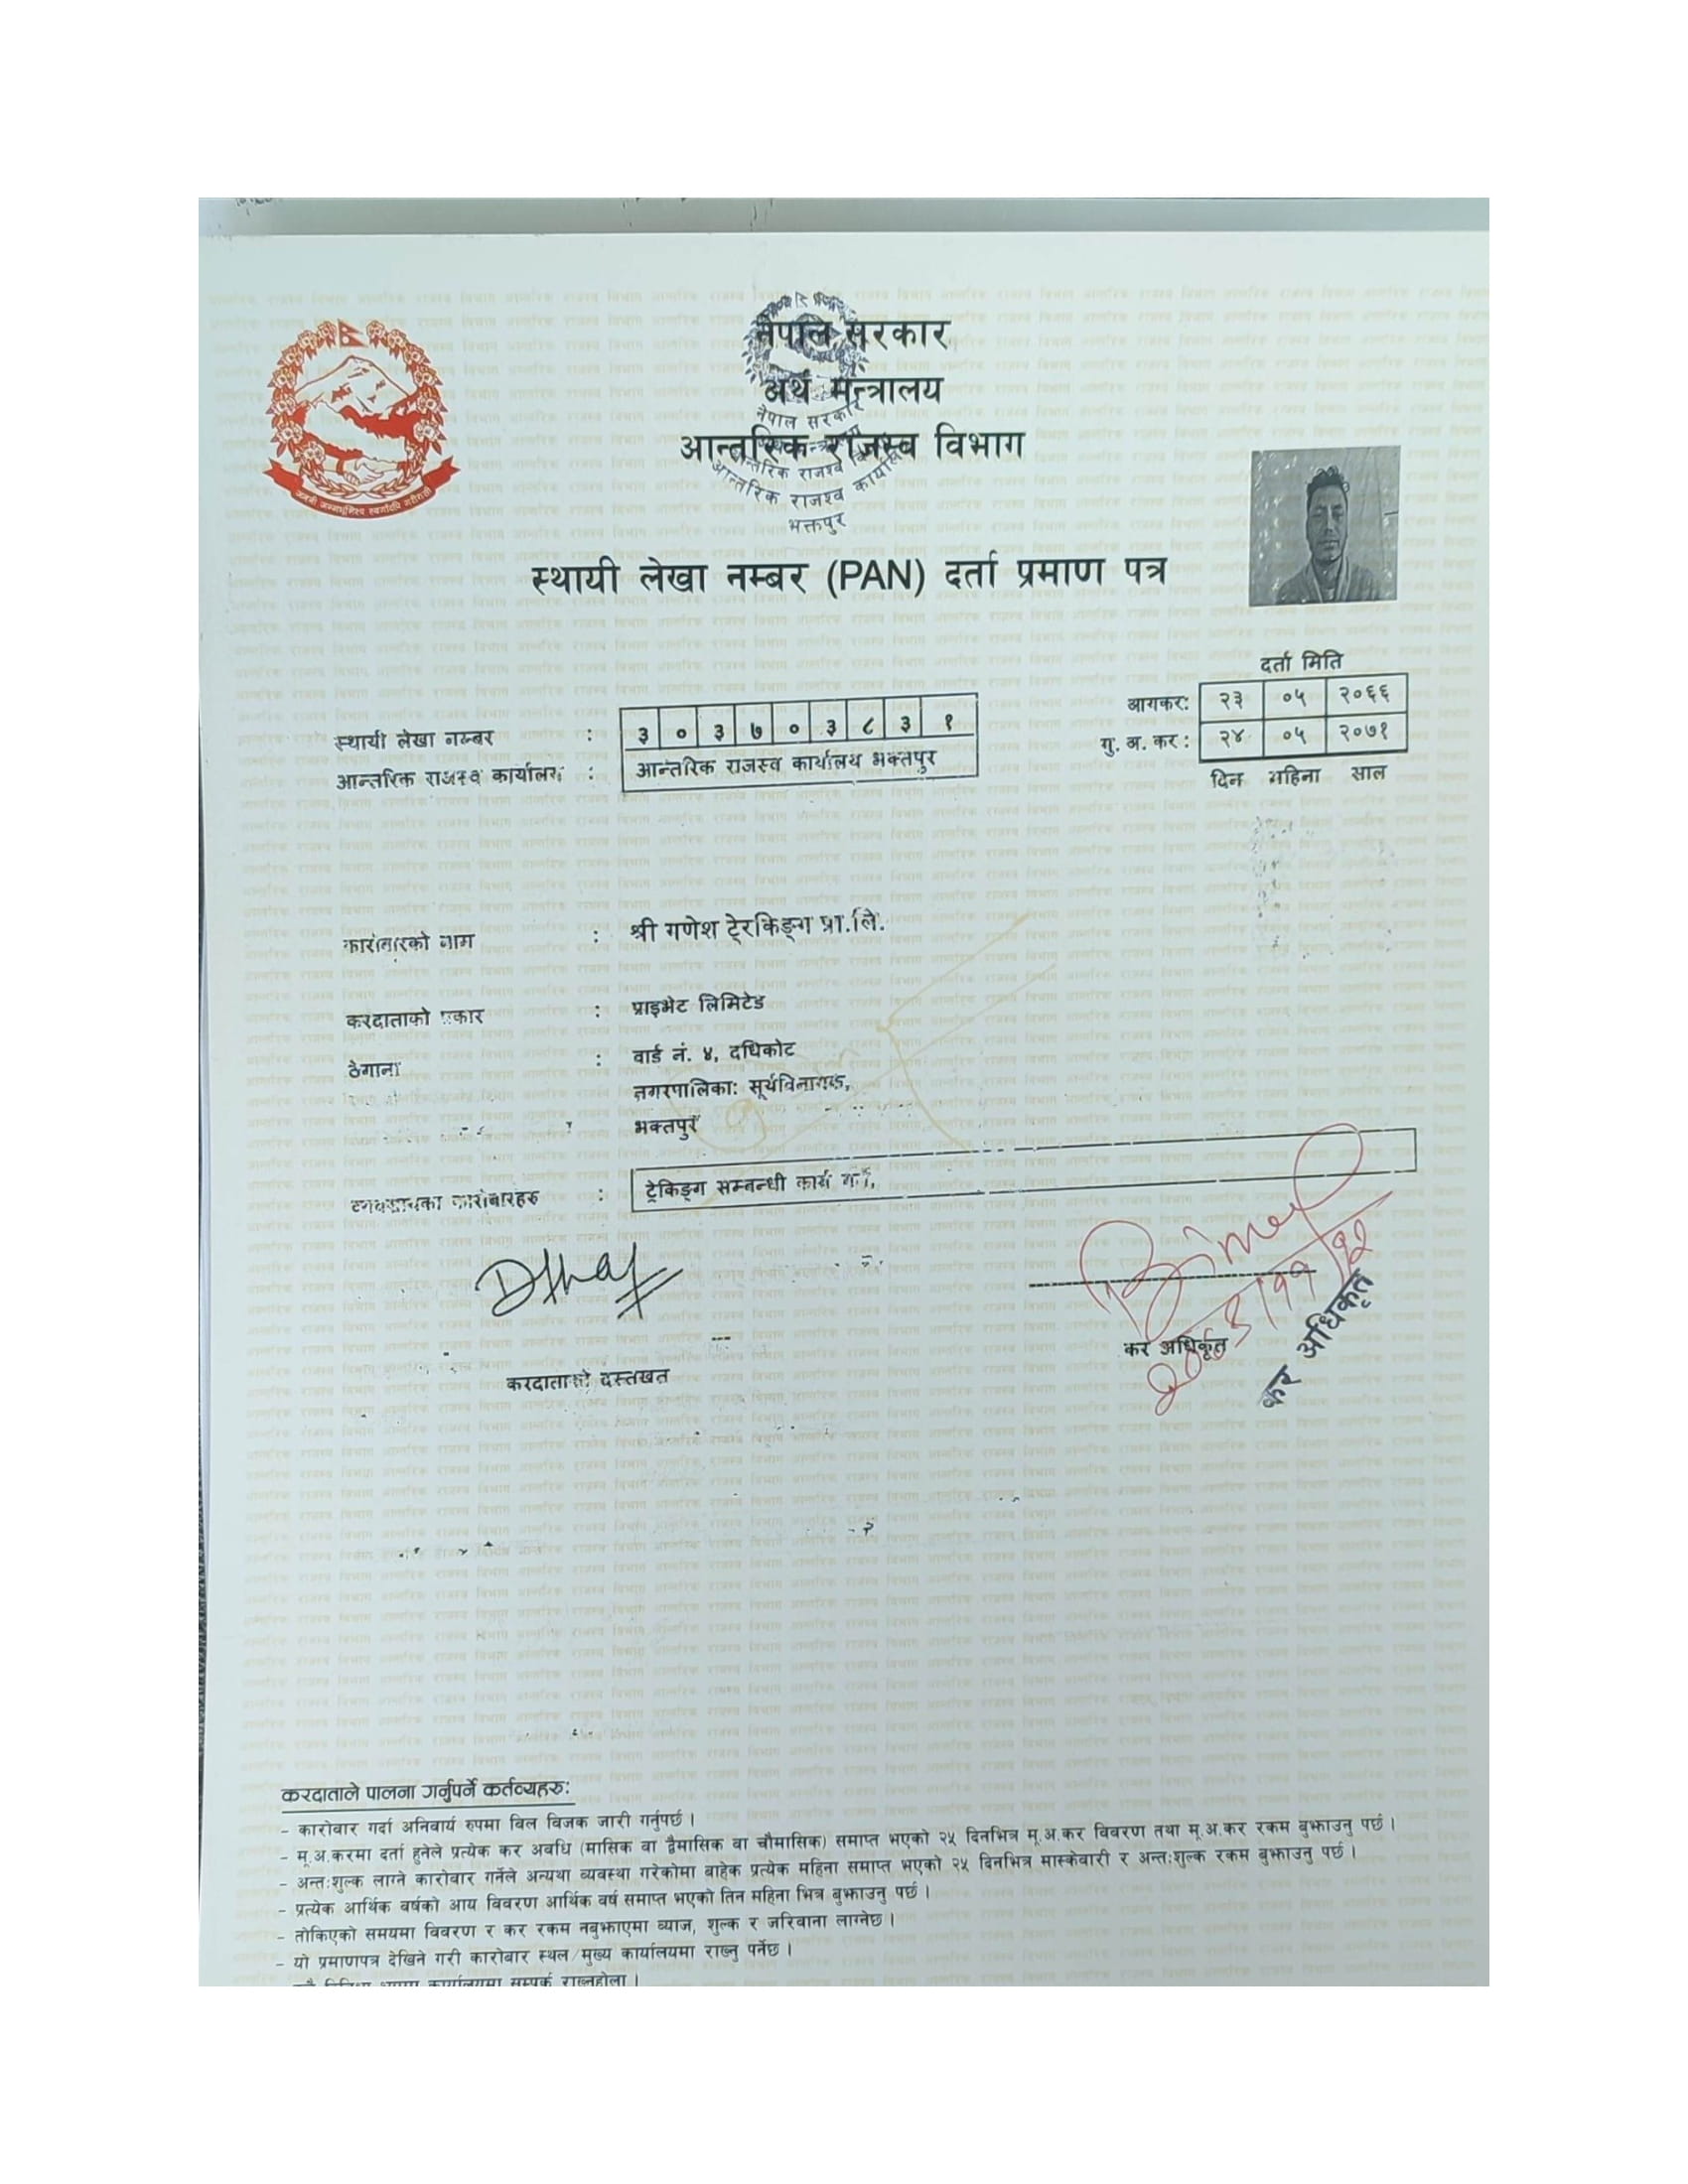 नेपाल सरकार
अर्थ मन्त्रालय
आन्तरिक राजस्व विभाग
नेपाल सरकार
आन्तरिक राजश्व कार्यालय
भक्तपुर
जननी जन्मभूमिश्च स्वर्गादपि गरीयसी
स्थायी लेखा नम्बर (PAN) दर्ता प्रमाण पत्र
दर्ता मिति
आयकर: २३ ०५ २०६६
मु. अ. कर : २४ ०५ २०७१
दिन महिना साल
स्थायी लेखा नम्बर : ३ ० ३ ७ ० ३ ८ ३ १
आन्तरिक राजस्व कार्यालय : आन्तरिक राजस्व कार्यालय भक्तपुर
कारोबारको नाम : श्री गणेश ट्रेकिङ्ग प्रा.लि.
करदाताको प्रकार : प्राइभेट लिमिटेड
ठेगाना : वार्ड नं. ४, दधिकोट
नगरपालिका: सूर्यविनायक,
भक्तपुर
कारोबारहरु : ट्रेकिङ्ग सम्बन्धी कार्य
करदाताको दस्तखत
कर अधिकृत
कर अधिकृत
करदाताले पालना गर्नुपर्ने कर्तव्यहरु:
- कारोबार गर्दा अनिवार्य रुपमा विल विजक जारी गर्नुपर्छ ।
- मू.अ.करमा दर्ता हुनेले प्रत्येक कर अवधि (मासिक वा द्वैमासिक वा चौमासिक) समाप्त भएको २५ दिनभित्र मू.अ.कर विवरण तथा मू.अ.कर रकम बुझाउनु पर्छ ।
- अन्तःशुल्क लाग्ने कारोबार गर्नेले अन्यथा व्यवस्था गरेकोमा बाहेक प्रत्येक महिना समाप्त भएको २५ दिनभित्र मास्केवारी र अन्तःशुल्क रकम बुझाउनु पर्छ ।
- प्रत्येक आर्थिक बर्षको आय विवरण आर्थिक वर्ष समाप्त भएको तिन महिना भित्र बुझाउनु पर्छ ।
- तोकिएको समयमा विवरण र कर रकम नबुझाएमा ब्याज, शुल्क र जरिवाना लाग्नेछ ।
- यो प्रमाणपत्र देखिने गरी कारोबार स्थल/मुख्य कार्यालयमा राख्नु पर्नेछ ।
कार्यालयमा सम्पर्क राख्नुहोला ।